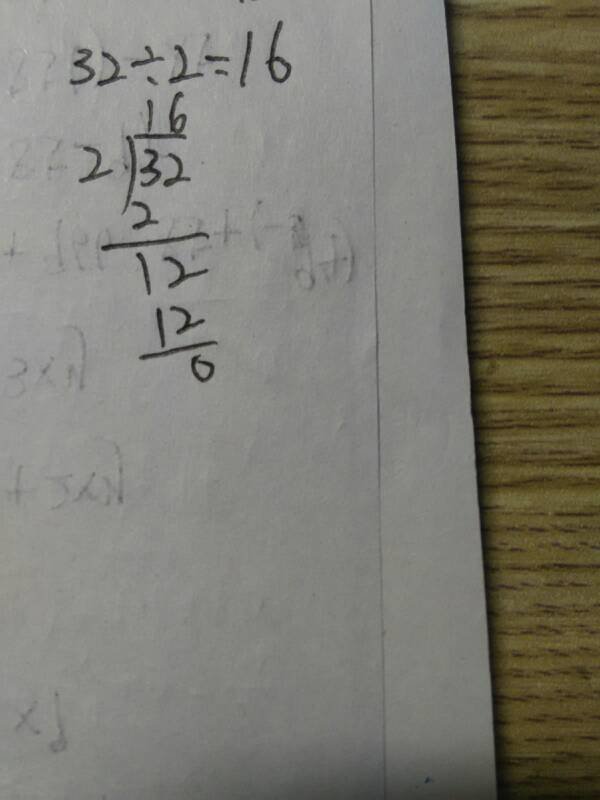 32÷2=16
16
2)32
2
12
12
0